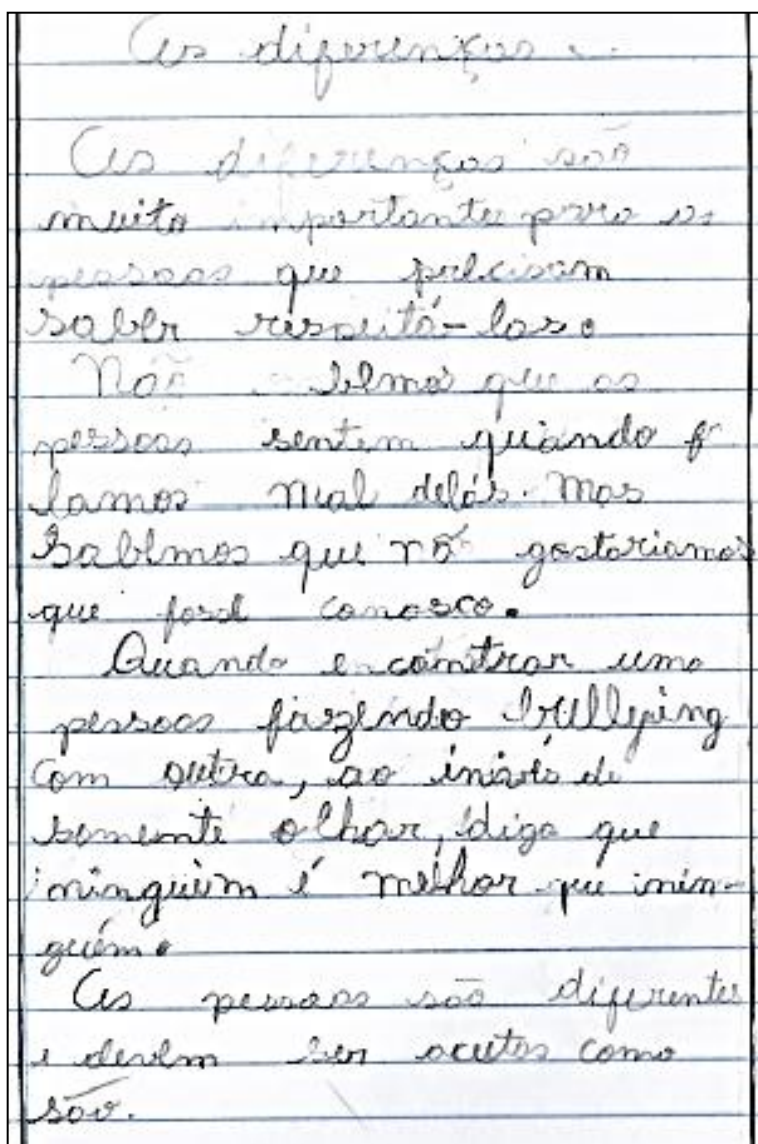 As diferenças
As diferenças são
muito importante para as
pessoas que precisam
saber respeitá-las.
Não sabemos que as
pessoas sentem quando fa
lamos mal delas. Mas
sabemos que não gostariamos
que fosse conosco.
Quando encontrar uma
pessoas fazendo bullying
com outra, ao invés de
somente olhar, diga que
ninguém é melhor que nin-
guém.
As pessoas são diferentes
e devem ser aceitas como
são.